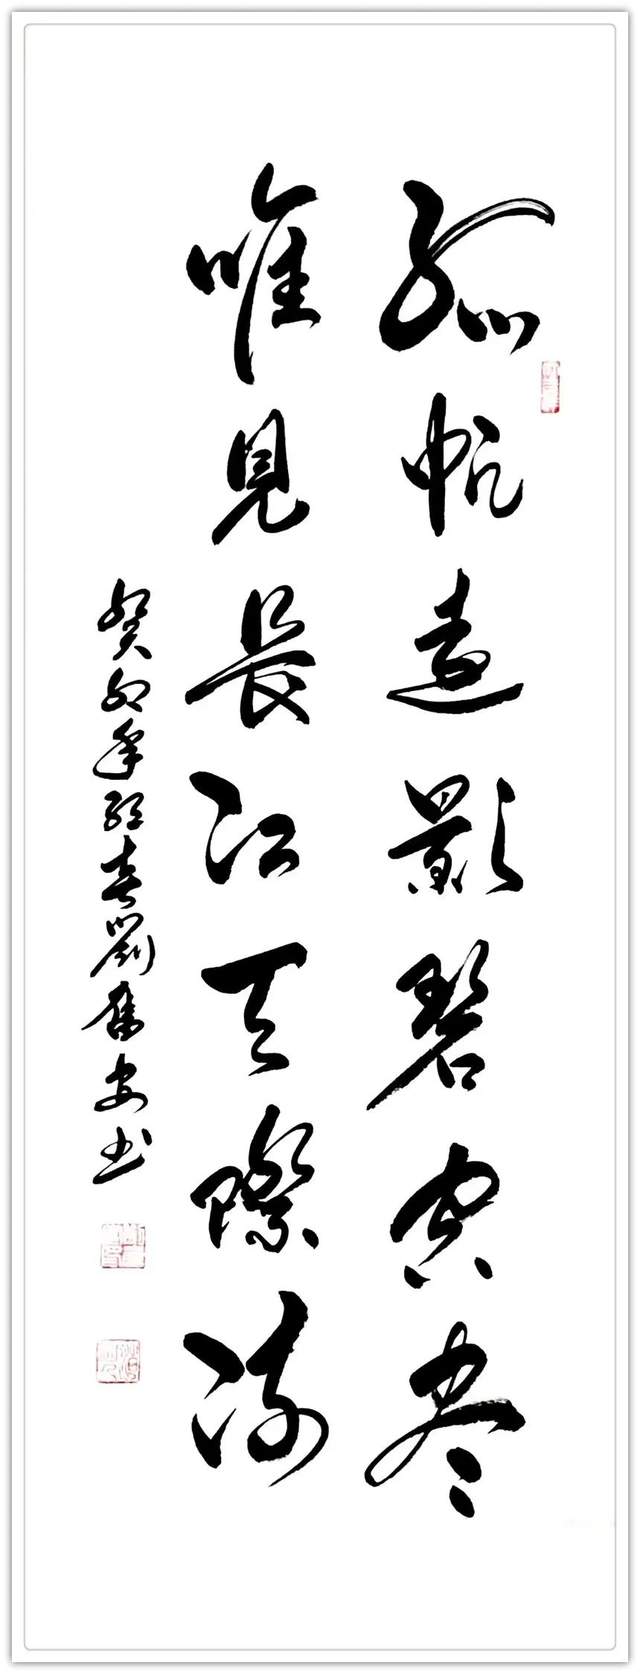 孤帆遠影碧空尽
唯見長江天際流
癸卯年春劉安书